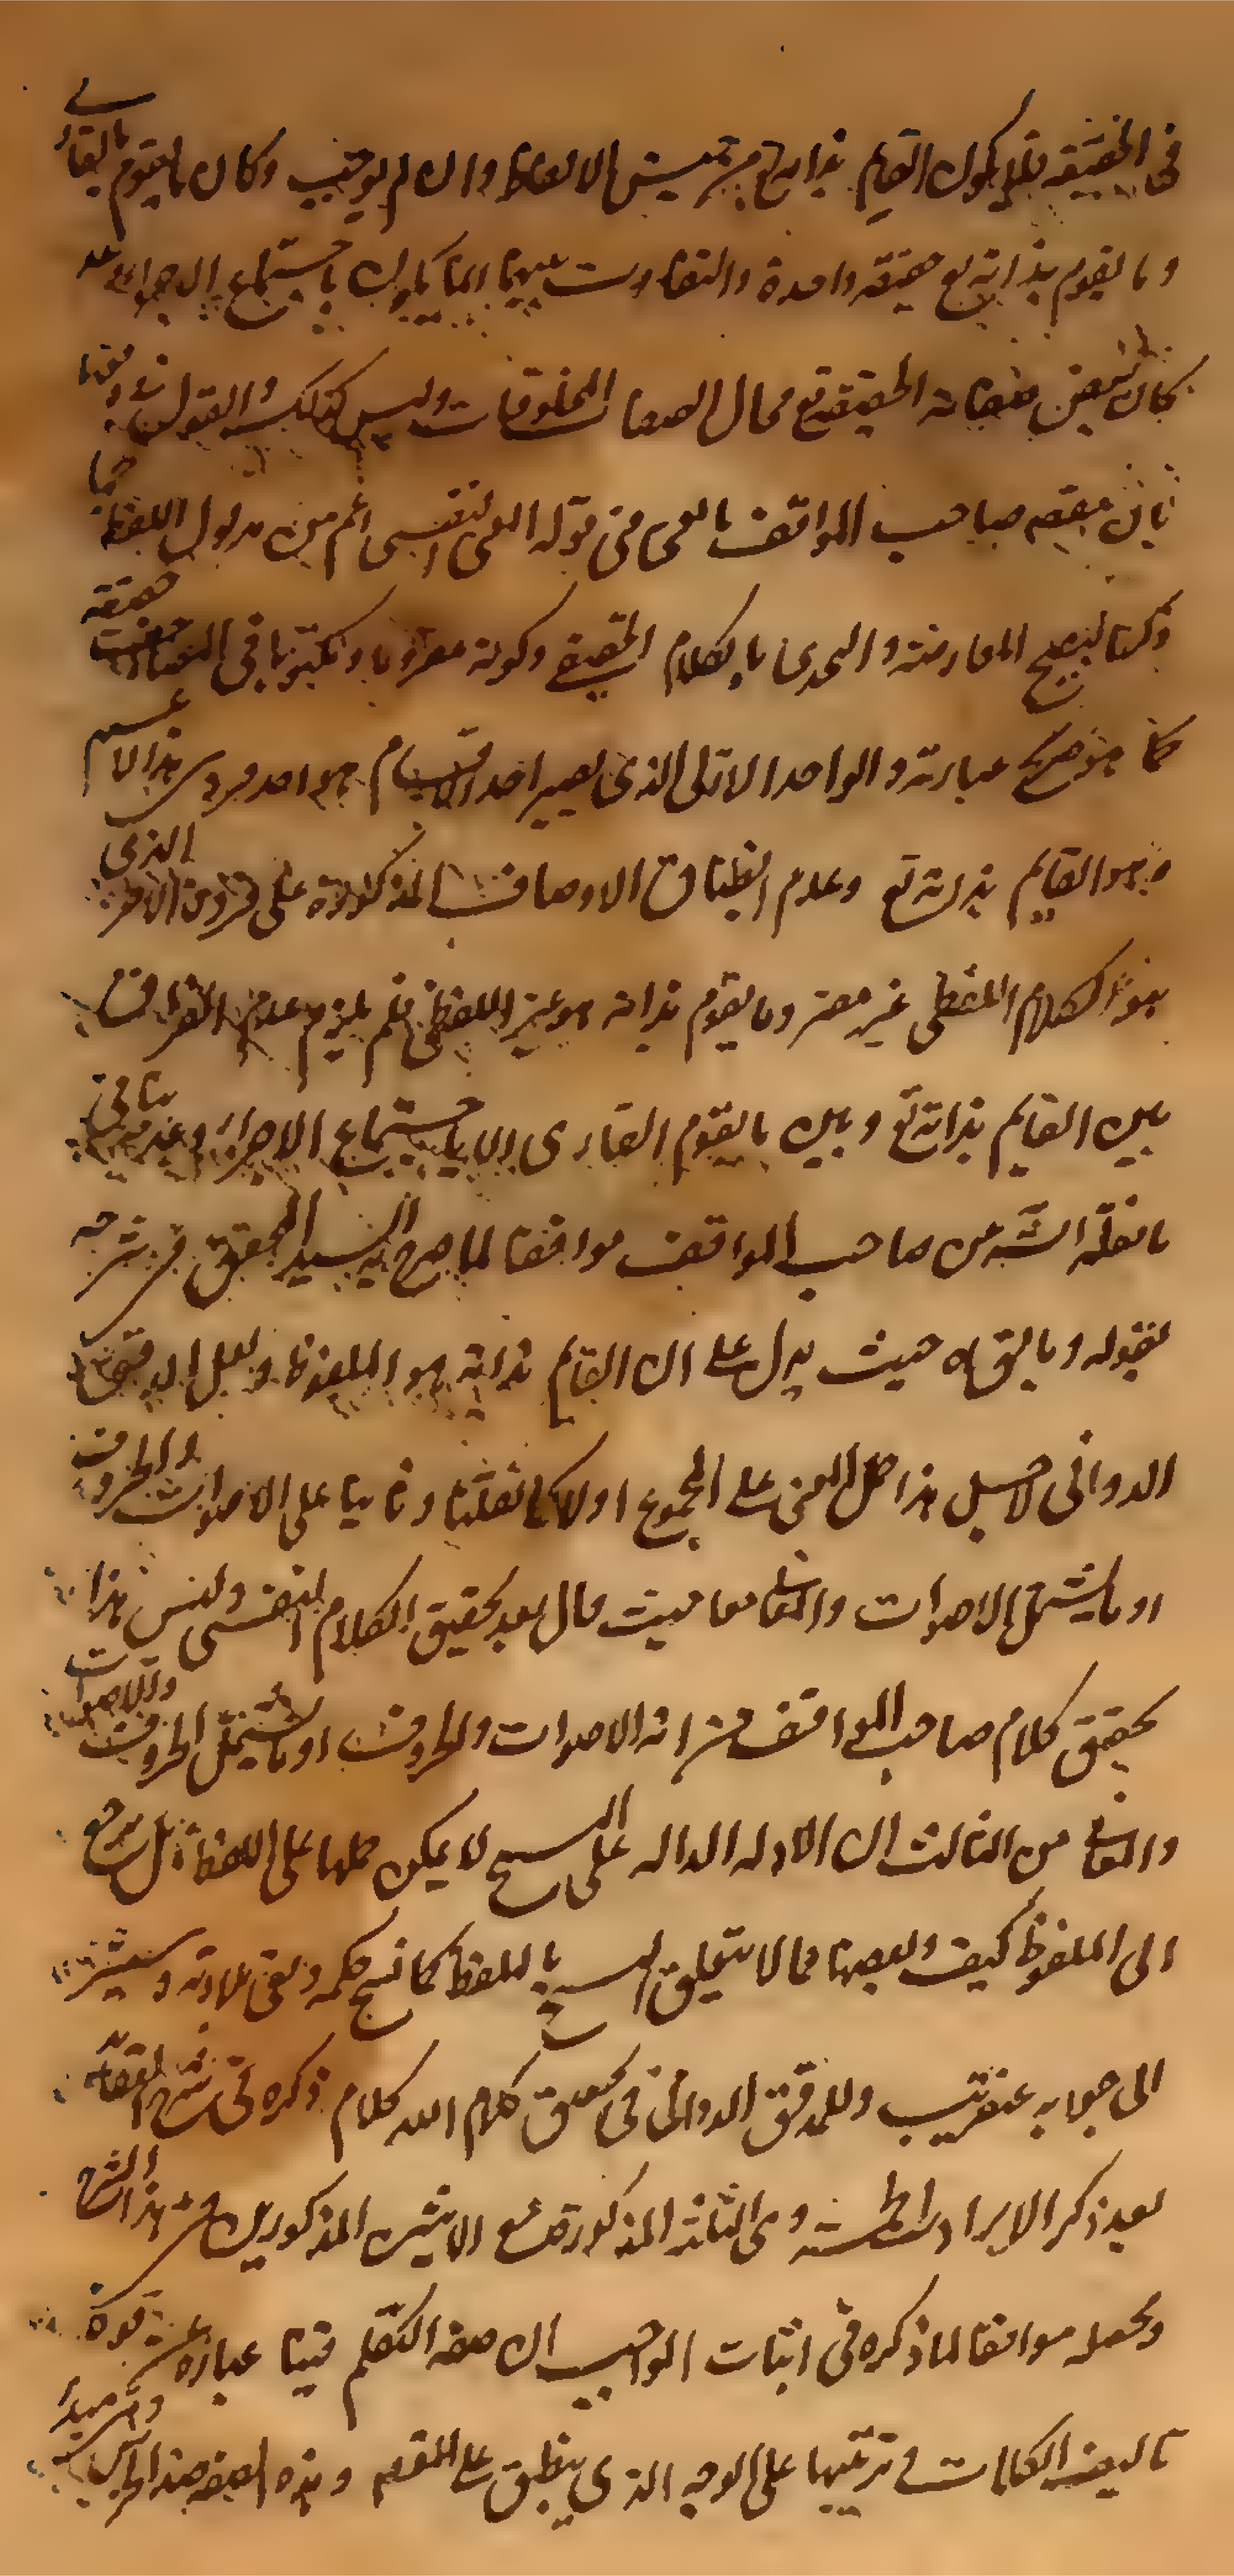 في الحقيقة فلا يكون القايم بذاته تع من جنس الالفاظ وان لم يوجب وكان ما يقوم بالقاري
وما يقوم بذاته تع حقيقة واحدة والتفاوت بينهما انما يكون باجتماع الاجزاء وعدمه
كان بعض صفاته الحقيقية تع مجال الصفات المخلوقات وليس كذلك والقول
بان مقصد صاحب المواقف بالمعنى في قوله المعنى النفسي اعم من مدلول اللفظ كما
ذكرنا ليصح المعارضة والتحدي بالكلام الحقيقي وكونه مقروءا ومكتوبا في المصاحف حقيقة
كما هو صريح عبارته والواحد الازلي الذي يصير احد الاقسام هو احد فردي هذا الاعم
وهو القايم بذاته تع وعدم انطباق الاوصاف المذكورة على فرده الاخر الذي
هو الكلام اللفظي غير مضر وما يقوم بذاته هو غير اللفظي فلم يلزم عدم الفرق
بين القايم بذاته تع وبين ما يقوم القاري الا باجتماع الاجزاء وعدمه ينافي
ما نقله الش من صاحب المواقف موافقا لما صرح به السيد المحقق في شرحه
بقوله وما يق اه حيث يدل على ان القايم بذاته هو الملفوظ ولعل المدقق
الدواني لاجل هذا حمل المعنى على المجموع اولا كما نقلنا وثانيا على الاصوات والحروف
او ما يشتمل الاصوات والمعاني معا حيث قال بعد تحقيق الكلام النفسي وليس هذا
تحقيق كلام صاحب المواقف من انه الاصوات والحروف او ما يشتمل الحروف والاصوات
والمعاني من الثالث ان الادلة الدالة على النسخ لا يمكن حملها على اللفظ بل يرجع
الى الملفوظ كيف وبعضها مما لا يتعلق النسخ باللفظ كما نسخ حكمه وبقي تلاوته وسيشير
الى جوابه عنقريب وللمدقق الدواني في تحقيق كلام الله كلام ذكره في شرح العقائد
بعد ذكر الايرادات الخمسة وهي الثلثة المذكورة مع الاثنين المذكورين في هذا الشرح
وجعله موافقا لما ذكره في اثبات الواجب ان صفة التكلم فينا عبارة عن قوة
تاليف الكلمات وترتيبها على الوجه الذي ينطبق على المقصد وهذه الصفة ضد الخرس وهي مبدأ